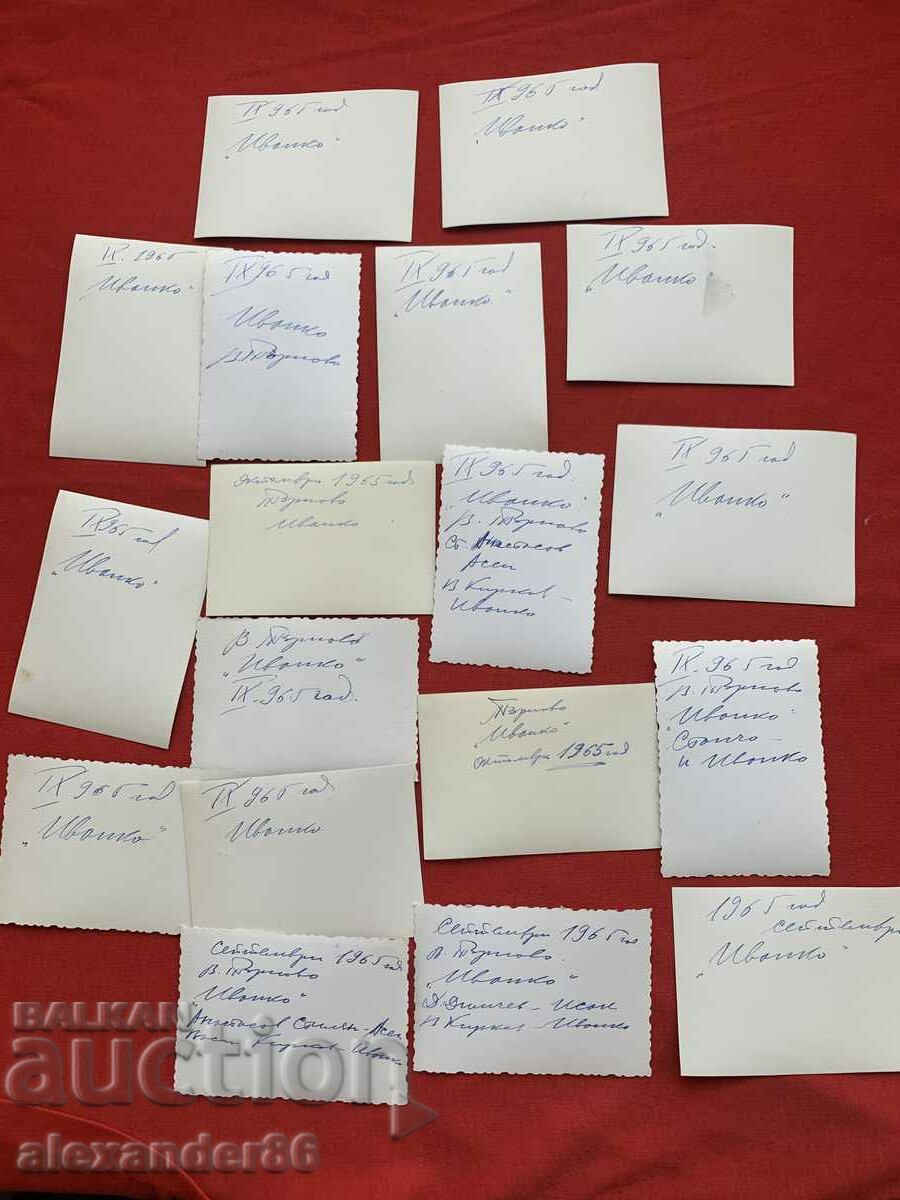 IX 965 год
„Иванко"
IX 965 год
„Иванко"
IX. 1965
„Иванко"
IX 965 год
Иванко
В. Търново
IX 965 год
„Иванко"
IX 965 год.
„Иванко"
IX 965 год
„Иванко"
октомври 1965 год
Търново
Иванко
IX 965 год.
„Иванко"
В. Търново
Ст. Анастасов
Асен
В Кирков -
Иванко
IX 965 год
„Иванко"
В Търново
„Иванко"
IX. 965 год.
Търново
„Иванко"
октомври 1965 год
IX. 965 год
В. Търново
„Иванко"
и Иванко
IX 965 год
„Иванко"
IX 965 год
Иванко
Септември 1965 год
В. Търново
„Иванко"
Анастасов Стилян - Асен
Кирков - Иванко
Септември 1965 год
В. Търново.
„Иванко"
Д. Димчев - Исак
В Кирков - Иванко
1965 год
септември
„Иванко"
BALKAN
auction
alexander86